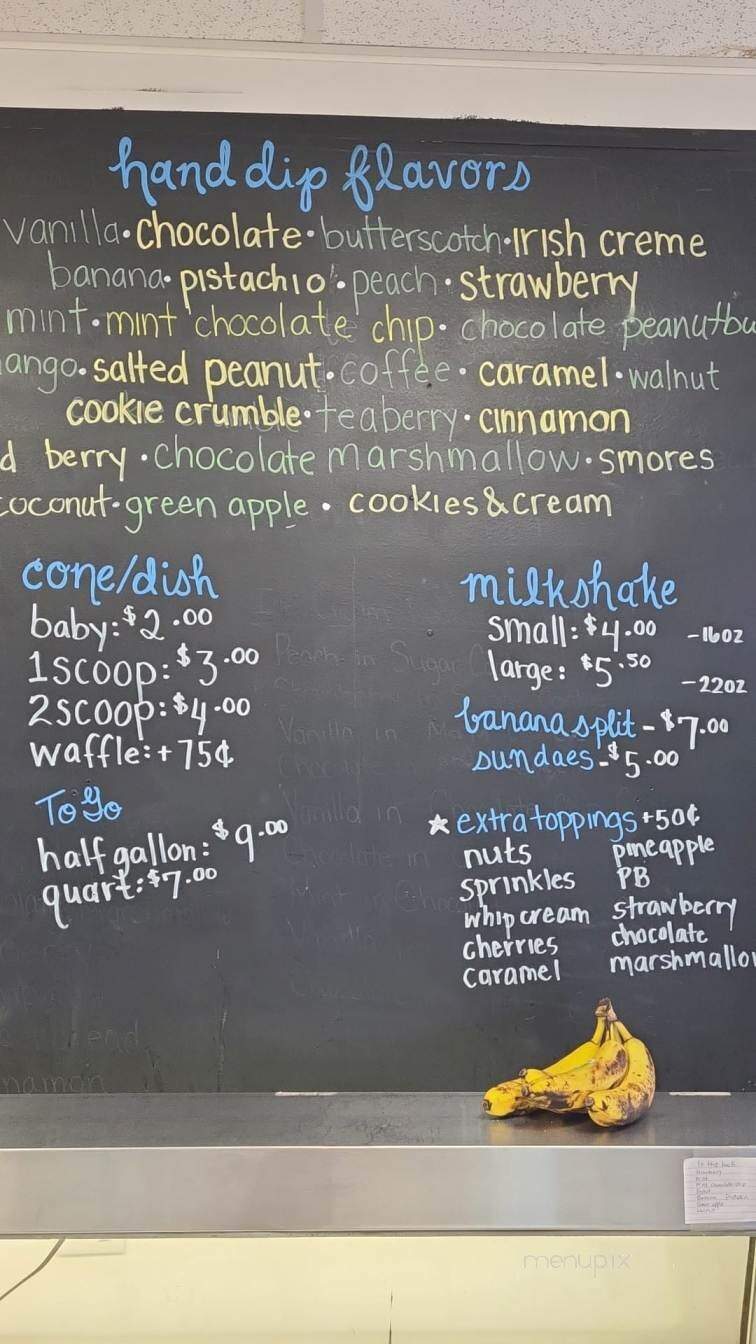 hand dip flavors
vanilla · chocolate · butterscotch · Irish creme
banana · pistachio · peach · strawberry
mint · mint chocolate chip · chocolate peanutbu
ango · salted peanut · coffee · caramel · walnut
cookie crumble · teaberry · cinnamon
d berry · chocolate marshmallow · smores
coconut · green apple · cookies & cream
cone/dish
baby: $2.00
1 scoop: $3.00
2 scoop: $4.00
waffle: + 75¢
To Go
half gallon: $9.00
quart: $7.00
milkshake
small: $4.00 - 16oz
large: $5.50 - 22oz
banana split - $7.00
sundaes - $5.00
★ extra toppings +50¢
nuts pineapple
sprinkles PB
whip cream strawberry
cherries chocolate
caramel marshmallow
menupix